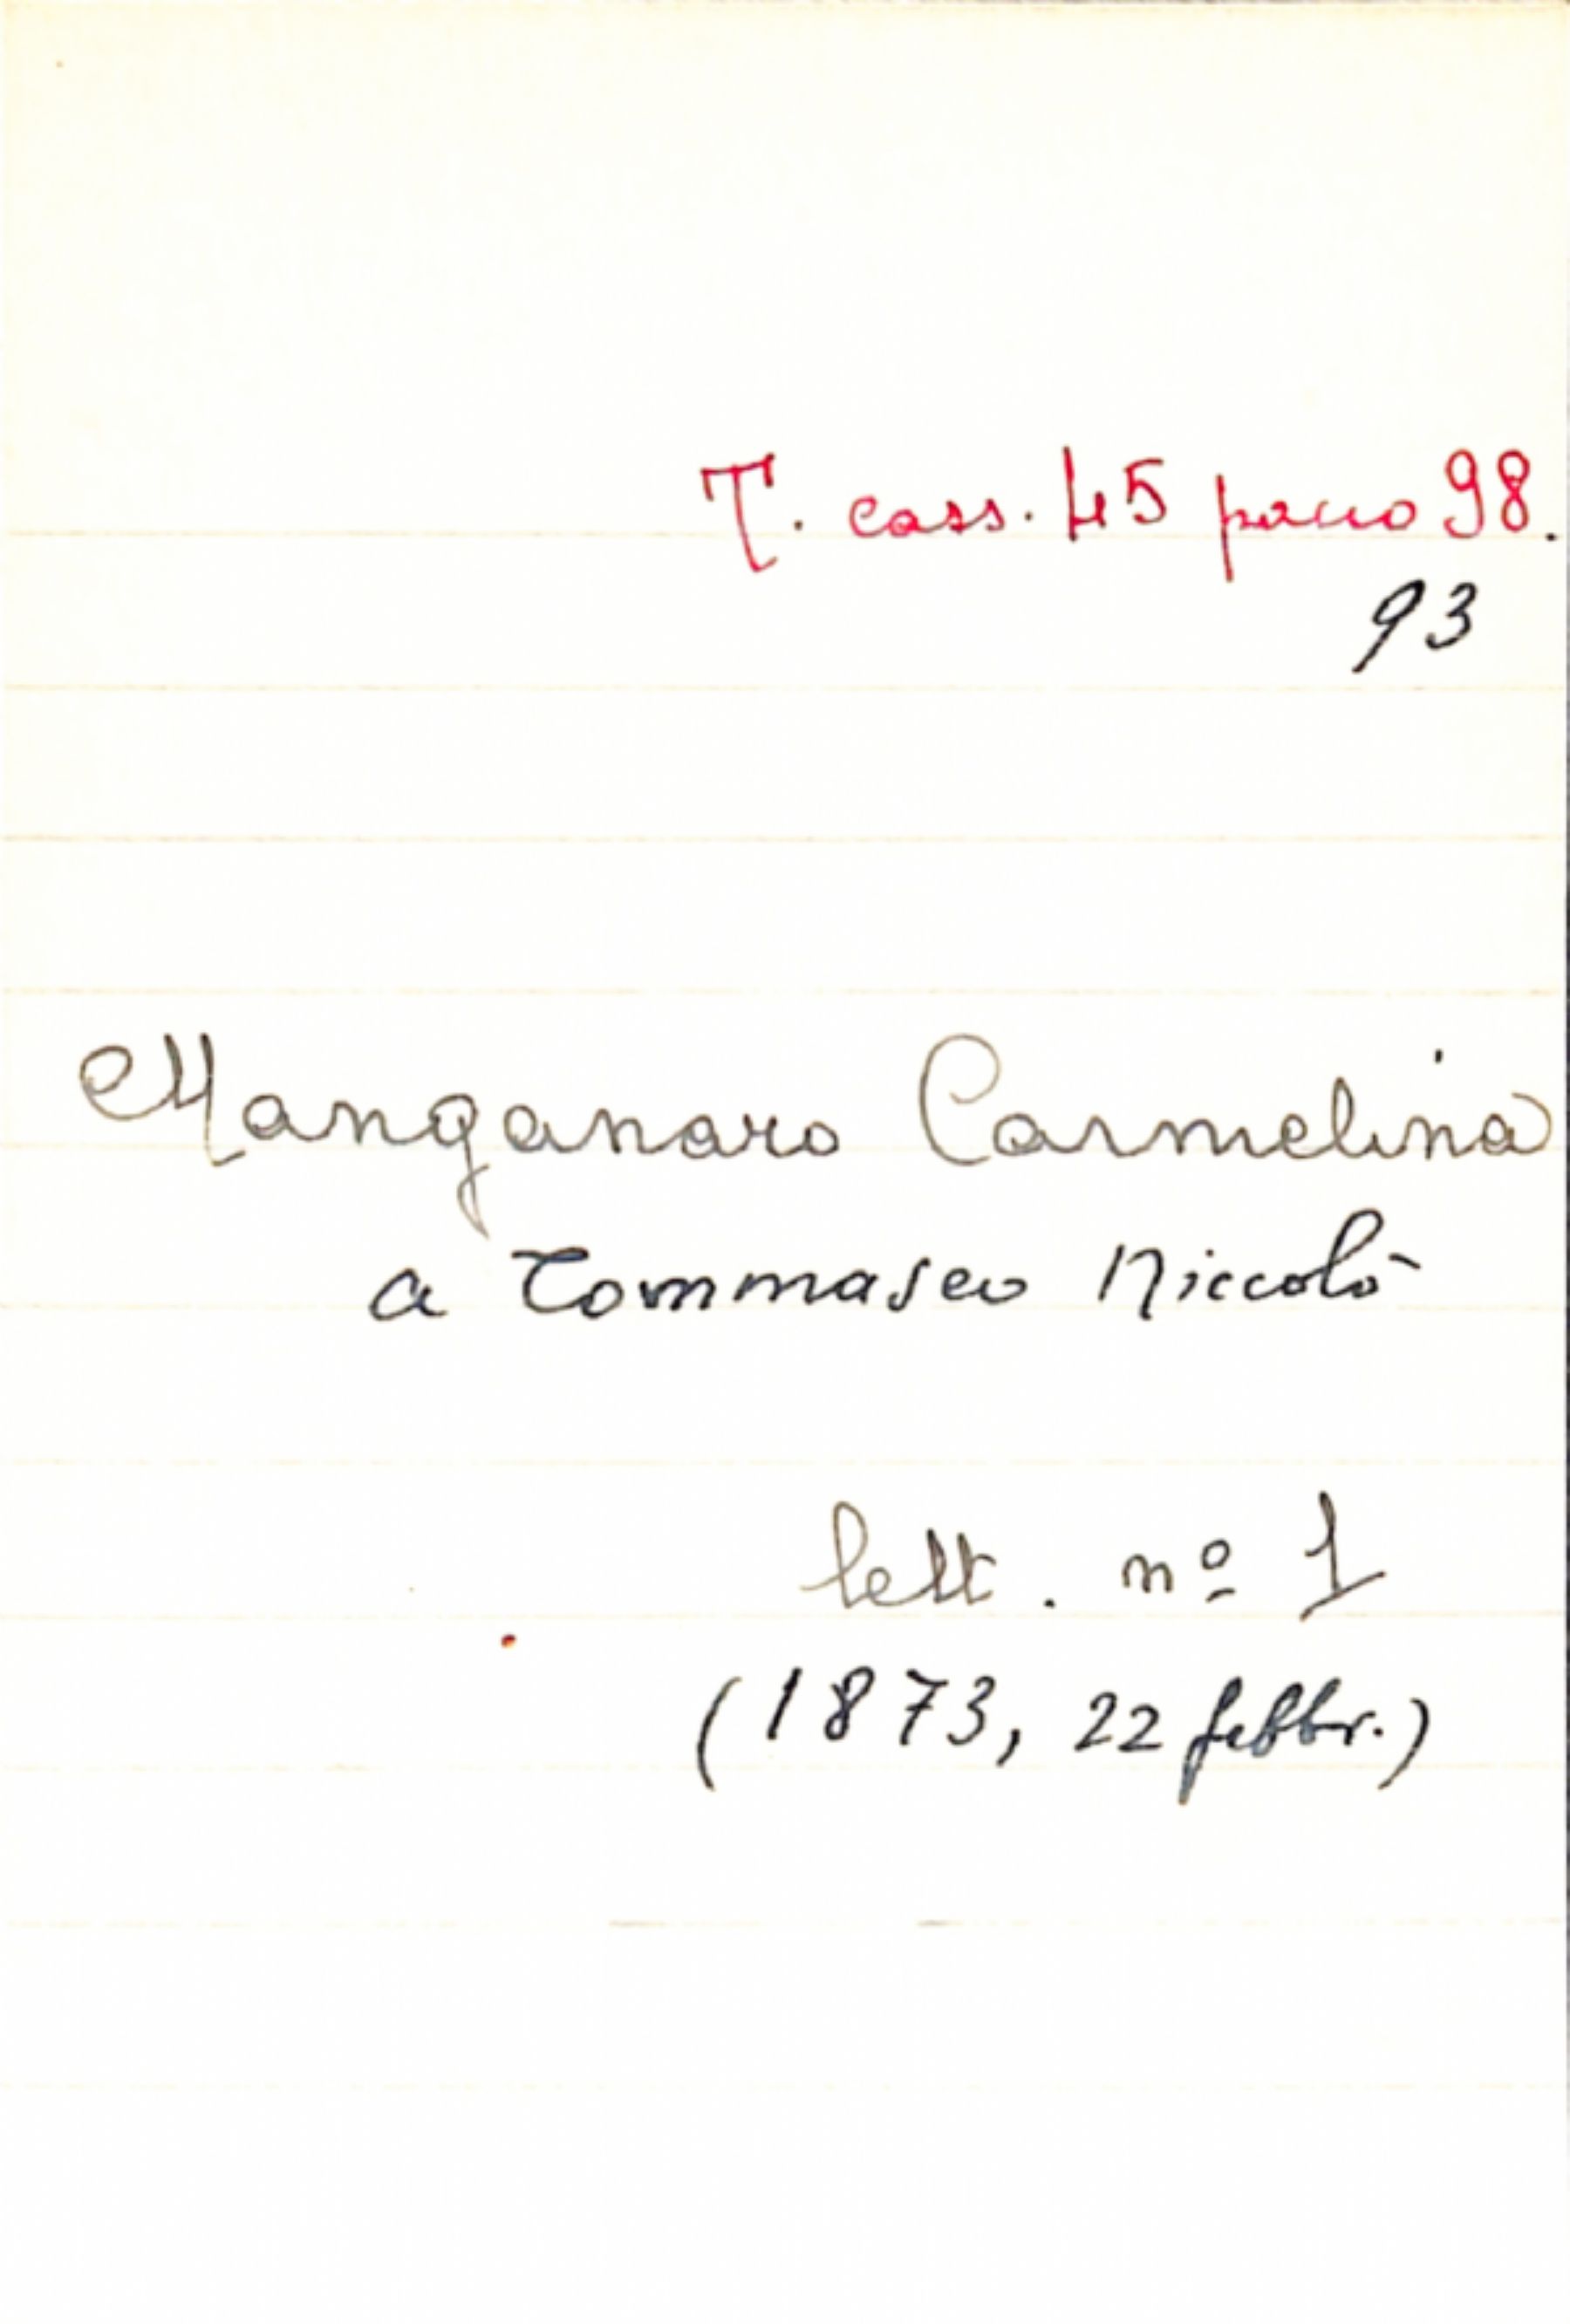 T. cass. 45 pacco 98.
93
Manganaro Carmelina
a Tommaseo Niccolò
lett. nº 1
(1873, 22 febbr.)